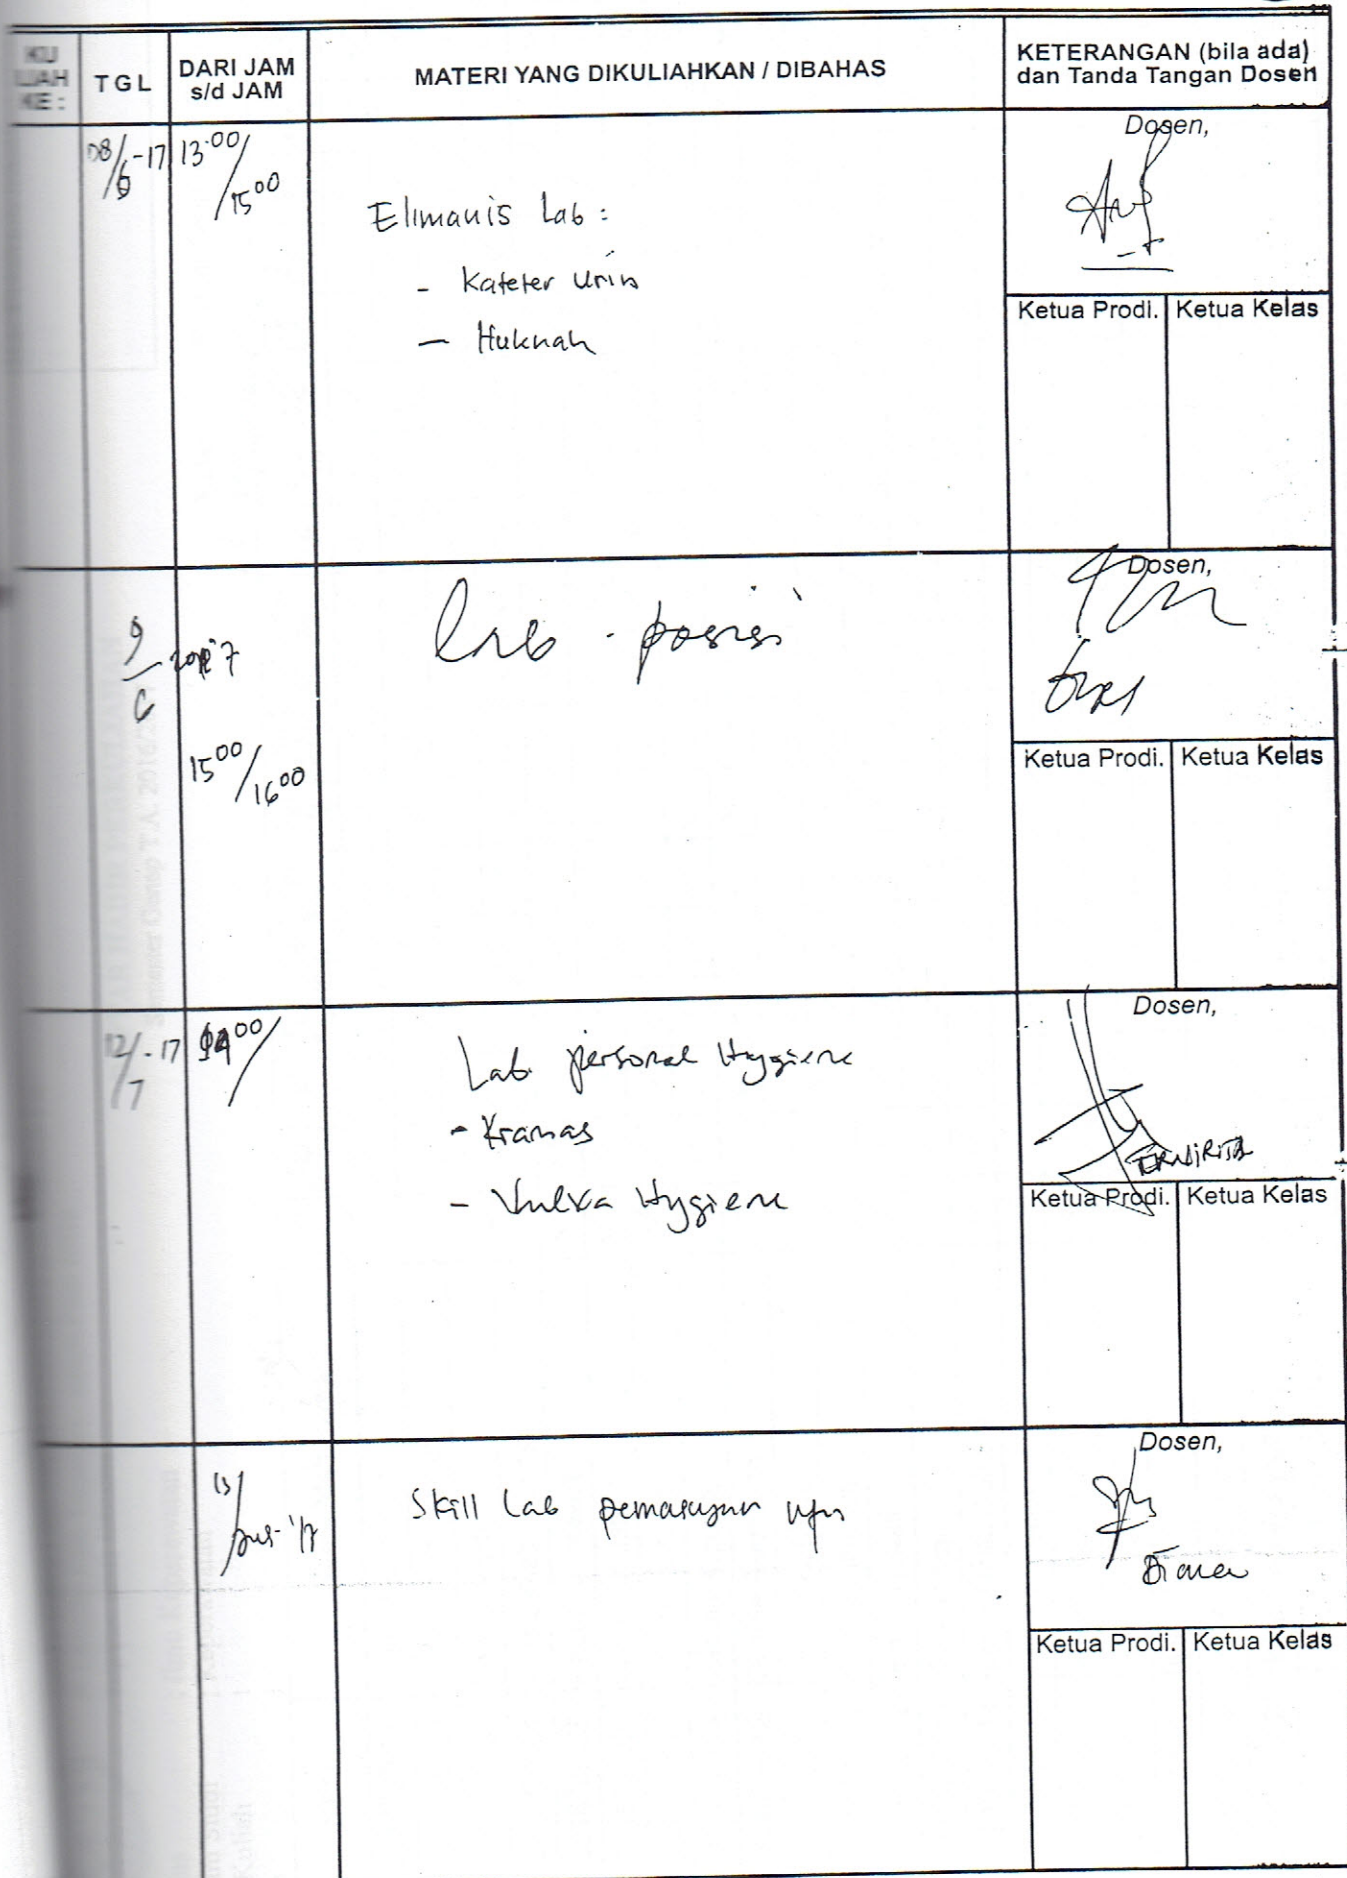 KU
LIAH
KE :
TGL
DARI JAM
s/d JAM
MATERI YANG DIKULIAHKAN / DIBAHAS
KETERANGAN (bila ada)
dan Tanda Tangan Dosen
08/6-17
13.00/
15 00
Elimanis Lab :
- Kateter Urin
- Huknah
Dosen,
Ketua Prodi. Ketua Kelas
9/6
15 00/
16 00
Lab - posisi
Dosen,
Ketua Prodi. Ketua Kelas
12/7 - 17
00/
Lab personal Hygiene
- Kramas
- Vulva Hygiene
Dosen,
Ketua Prodi. Ketua Kelas
13/
Skill Lab
Dosen,
Diana
Ketua Prodi. Ketua Kelas